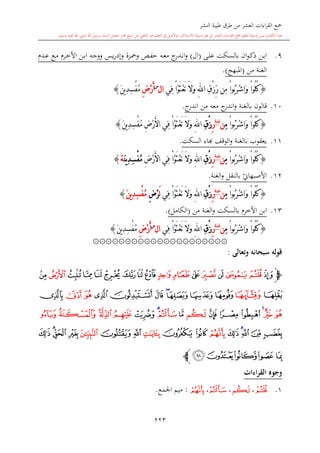 جمع القراءات العشر من طرق طيبة النشر
٩. ابن ذكوان بالسكت على (ال) واندرج معه حفص وحمزة وإدريس ووجه ابن الأخرم مع عدم
الغنة من (المبهج).
﴿كُلُوا۟ وَٱشْرَبُوا۟ مِن رِّزْقِ ٱللَّهِ وَلَا تَعْثَوْا۟ فِى ٱلْأَرْضِ مُفْسِدِينَ﴾
١٠. قالون بالغنة واندرج معه من اندرج.
﴿كُلُوا۟ وَٱشْرَبُوا۟ مِن رِّزْقِ ٱللَّهِ وَلَا تَعْثَوْا۟ فِى ٱلْأَرْضِ مُفْسِدِينَ﴾
١١. يعقوب بالغنة والوقف بهاء السكت.
﴿كُلُوا۟ وَٱشْرَبُوا۟ مِن رِّزْقِ ٱللَّهِ وَلَا تَعْثَوْا۟ فِى ٱلْأَرْضِ مُفْسِدِينَهْ﴾
١٢. الأصبهانيّ بالنقل والغنة.
﴿كُلُوا۟ وَٱشْرَبُوا۟ مِن رِّزْقِ ٱللَّهِ وَلَا تَعْثَوْا۟ فِى لَرْضِ مُفْسِدِينَ﴾
١٣. ابن الأخرم بالسكت والغنة من (الكامل).
﴿كُلُوا۟ وَٱشْرَبُوا۟ مِن رِّزْقِ ٱللَّهِ وَلَا تَعْثَوْا۟ فِى ٱلْأَرْضِ مُفْسِدِينَ﴾
قوله سبحانه وتعالى :
﴿ وَإِذْ قُلْتُمْ يَـٰمُوسَىٰ لَن نَّصْبِرَ عَلَىٰ طَعَامٍ وَٰحِدٍ فَٱدْعُ لَنَا رَبَّكَ يُخْرِجْ لَنَا مِمَّا تُنۢبِتُ ٱلْأَرْضُ مِنۢ
بَقْلِهَا وَقِثَّآئِهَا وَفُومِهَا وَعَدَسِهَا وَبَصَلِهَا قَالَ أَتَسْتَبْدِلُونَ ٱلَّذِى هُوَ أَدْنَىٰ بِٱلَّذِى
هُوَ خَيْرٌ ٱهْبِطُوا۟ مِصْرًا فَإِنَّ لَكُم مَّا سَأَلْتُمْ وَضُرِبَتْ عَلَيْهِمُ ٱلذِّلَّةُ وَٱلْمَسْكَنَةُ وَبَآءُو
بِغَضَبٍ مِّنَ ٱللَّهِ ذَٰلِكَ بِأَنَّهُمْ كَانُوا۟ يَكْفُرُونَ بِـَٔايَـٰتِ ٱللَّهِ وَيَقْتُلُونَ ٱلنَّبِيِّـۧنَ بِغَيْرِ ٱلْحَقِّ ذَٰلِكَ
بِمَا عَصَوا۟ وَّكَانُوا۟ يَعْتَدُونَ ﴾
وجوه القراءات
١. قُلْتُمْ ، لَكُم ، سَأَلْتُمْ ، بِأَنَّهُمْ : ميم الجمع.
٢٢٣